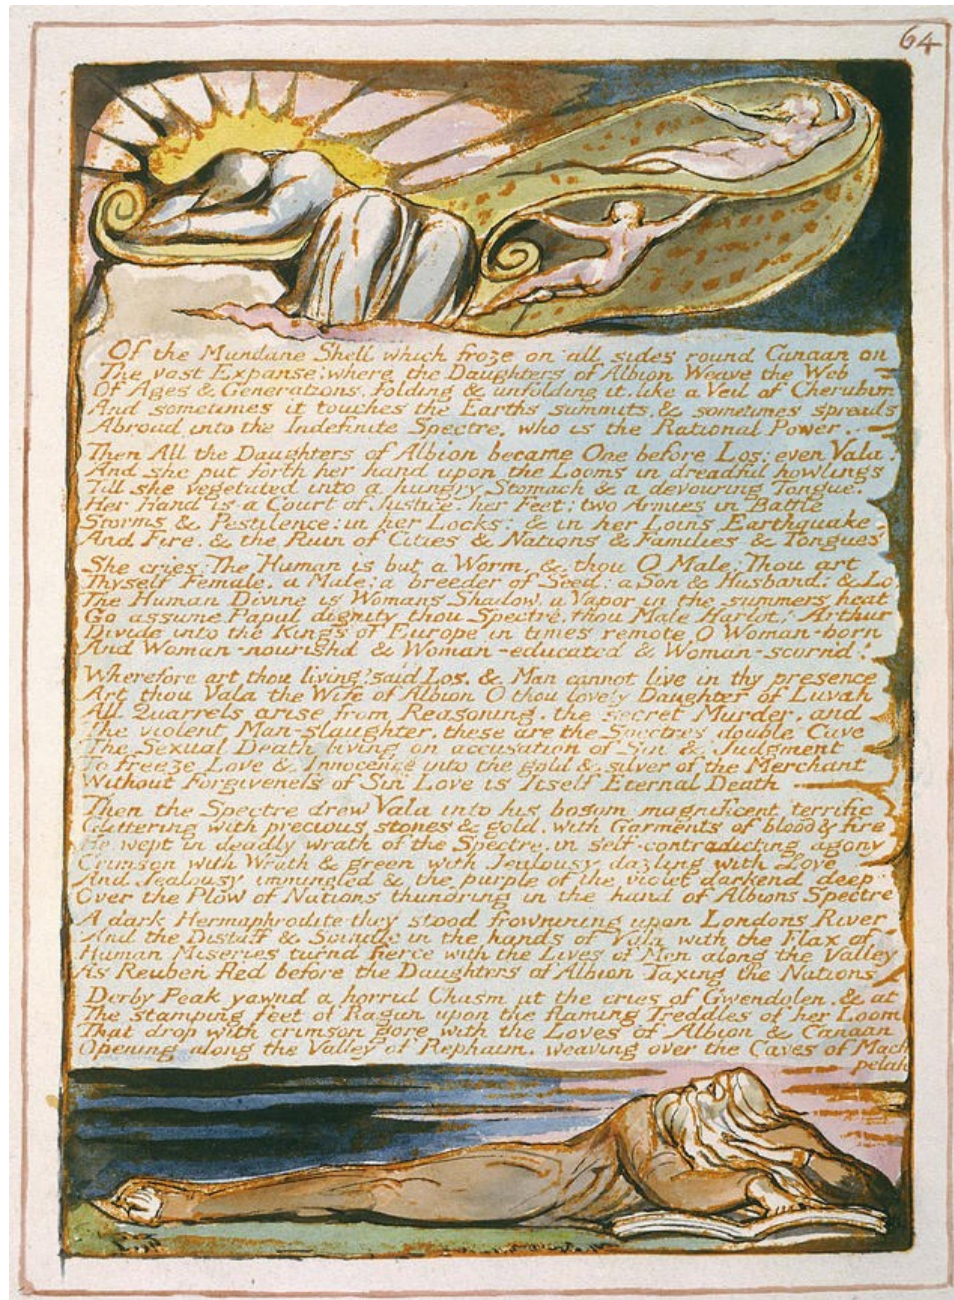 64
Of the Mundane Shell which froze on all sides round Canaan on
The vast Expanse: where the Daughters of Albion Weave the Web
Of Ages & Generations, folding & unfolding it, like a Veil of Cherubim
And sometimes it touches the Earths summits, & sometimes spreads
Abroad into the Indefinite Spectre, who is the Rational Power.
Then All the Daughters of Albion became One before Los: even Vala!
And she put forth her hand upon the Looms in dreadful howlings
Till she vegetated into a hungry Stomach & a devouring Tongue.
Her Hand is a Court of Justice, her Feet: two Armies in Battle
Storms & Pestilence: in her Locks: & in her Loins Earthquake.
And Fire. & the Ruin of Cities & Nations & Families & Tongues
She cries: The Human is but a Worm, & thou O Male: Thou art
Thyself Female, a Male: a breeder of Seed: a Son & Husband: & Lo.
The Human Divine is Womans Shadow, a Vapor in the summers heat
Go assume Papal dignity thou Spectre, thou Male Harlot! Arthur
Divide into the Kings of Europe in times remote O Woman-born
And Woman-nourishd & Woman-educated & Woman-scornd!
Wherefore art thou living? said Los, & Man cannot live in thy presence
Art thou Vala the Wife of Albion O thou lovely Daughter of Luvah
All Quarrels arise from Reasoning. the secret Murder, and
The violent Man-slaughter, these are the Spectres double Cave
The Sexual Death living on accusation of Sin & Judgment
To freeze Love & Innocence into the gold & silver of the Merchant
Without Forgiveness of Sin Love is Itself Eternal Death
Then the Spectre drew Vala into his bosom magnificent terrific
Glittering with precious stones & gold, with Garments of blood & fire
He wept in deadly wrath of the Spectre, in self-contradicting agony
Crimson with Wrath & green with Jealousy dazling with Love
And Jealousy immingled & the purple of the violet darkend deep
Over the Plow of Nations thundring in the hand of Albions Spectre
A dark Hermaphrodite they stood frowning upon Londons River
And the Distaff & Spindle in the hands of Vala with the Flax of
Human Miseries turnd fierce with the Lives of Men along the Valley
As Reuben fled before the Daughters of Albion Taxing the Nations
Derby Peak yawnd a horrid Chasm at the cries of Gwendolen, & at
The stamping feet of Ragan upon the flaming Treddles of her Loom
That drop with crimson gore with the Loves of Albion & Canaan
Opening along the Valley of Rephaim, weaving over the Caves of Mach
pelah